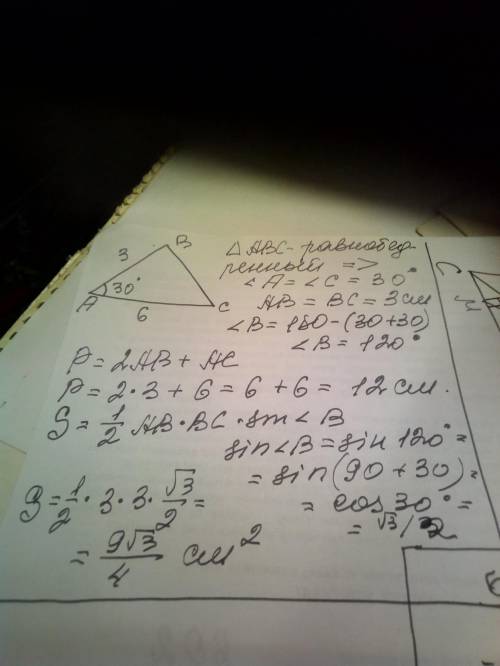 3
B
A
30°
6
C
△ABC - равнобед-
ренный =>
∠A = ∠C = 30°
AB = BC = 3 см
∠B = 180 - (30+30)
∠B = 120°
P = 2AB + AC
P = 2 · 3 + 6 = 6 + 6 = 12 см.
S = 1/2 AB · BC · sin ∠B
sin∠B = sin 120° =
= sin(90 + 30) =
= cos 30° =
= √3/2
S = 1/2 · 3 · 3 · √3/2 =
= 9√3/4 см²